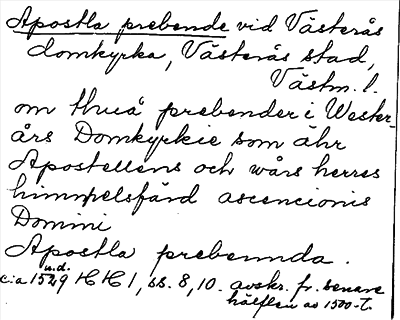 Apostla prebende vid Västerås
domkyrka, Västerås stad,
Västm. l.
om thuå prebender i Wester-
års Domkyrkie som ähr
Apostellens och wårs herres
himmelsfärd ascencionis
Domini
Apostla prebennda.
u.d.
c:a 1529 HH 1, ss. 8, 10. avskr. fr. senare
hälften av 1500-t.